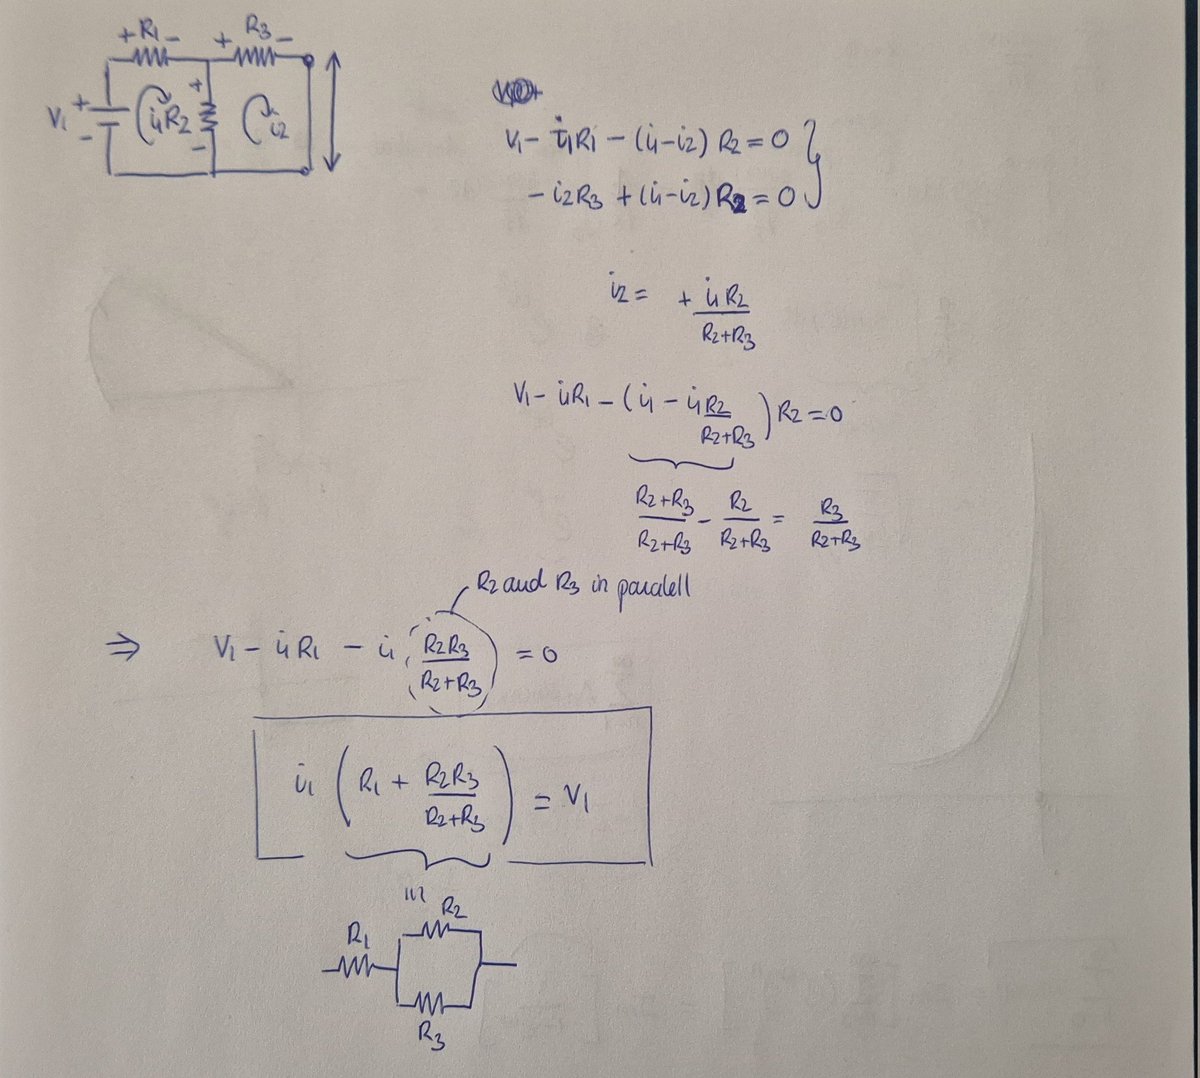 + R1 - + R3 -
V1 + - i1 R2 + - i2
V1 - i1R1 - (i1-i2) R2 = 0 }
- i2R3 + (i1-i2) R2 = 0
i2 = + i1R2 / R2+R3
V1 - i1R1 - (i1 - i1R2 / R2+R3) R2 = 0
R2+R3 / R2+R3 - R2 / R2+R3 = R3 / R2+R3
R2 and R3 in paralell
⇒ V1 - i1R1 - i1 R2R3 / R2+R3 = 0
i1 (R1 + R2R3 / R2+R3) = V1
R2
R1
R3